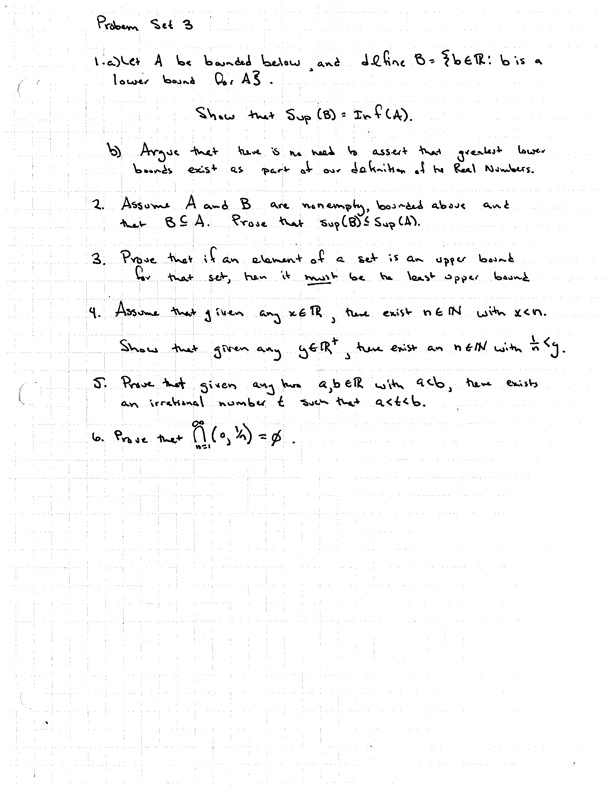 Probem Set 3
1. a) Let A be bounded below, and define B = {b ∈ ℝ : b is a
lower bound for A}.
Show that Sup (B) = Inf (A).
b) Argue that there is no need to assert that greatest lower
bounds exist as part of our definition of the Real Numbers.
2. Assume A and B are nonempty, bounded above and
that B ⊆ A. Prove that sup(B) ≤ Sup (A).
3. Prove that if an element of a set is an upper bound
for that set, then it must be the least upper bound
4. Assume that given any x ∈ ℝ, there exist n ∈ ℕ with x < n.
Show that given any y ∈ ℝ⁺, there exist an n ∈ ℕ with 1/n < y.
5. Prove that given any two a, b ∈ ℝ with a < b, there exists
an irrational number t such that a < t < b.
6. Prove that ⋂_{n=1}^{∞} (0, 1/n) = ∅.